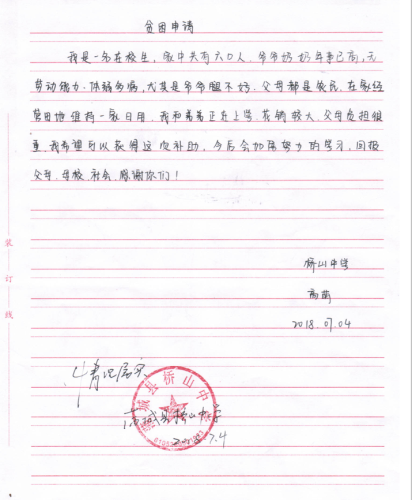 贫困申请
我是一名在校生，家中共有六口人，爷爷奶奶年事已高，无
劳动能力，体弱多病，尤其是爷爷腿不好，父母都是农民，在家经
营田地维持一家日用，我和弟弟正在上学，花销较大，父母负担很
重，我希望可以获得这次补助，今后会加倍努力的学习，回报
父母、母校、社会，感谢你们！
桥山中学
2018.07.04
情况属实
城县桥山中学
城县桥山中学
2018.7.4
装
订
线